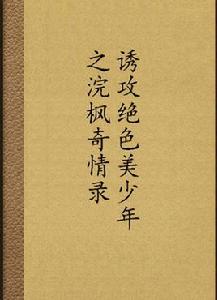 诱攻绝色美少年
之浣枫奇情录